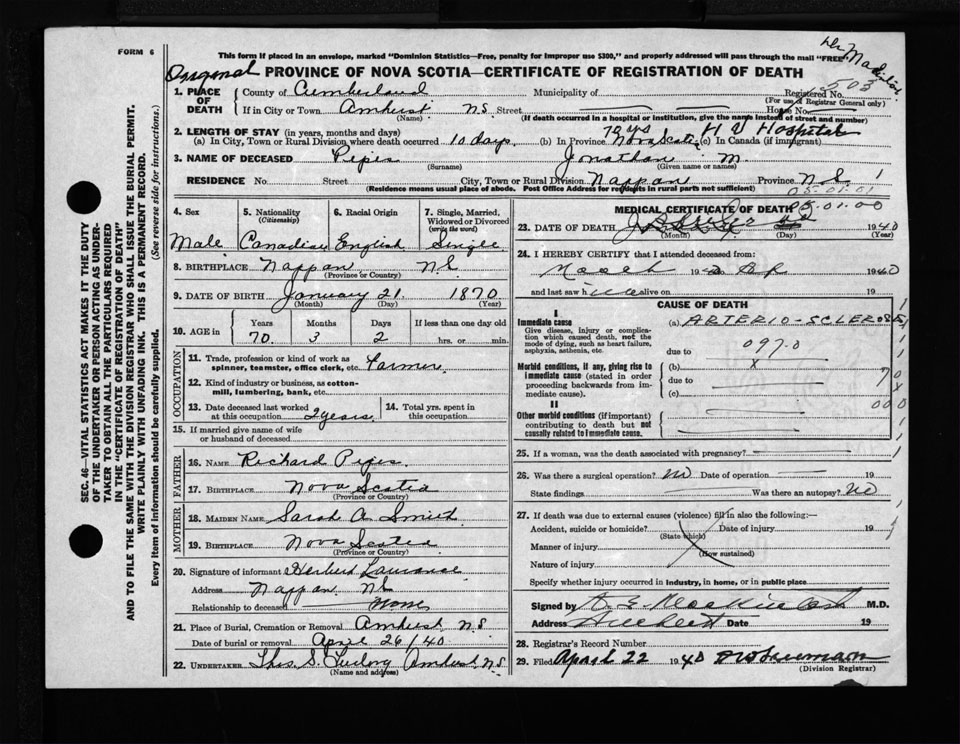 FORM 6
This form if placed in an envelope, marked "Dominion Statistics—Free, penalty for improper use $300," and properly addressed will pass through the mail "FREE"
PROVINCE OF NOVA SCOTIA—CERTIFICATE OF REGISTRATION OF DEATH
Original
1. PLACE OF DEATH
County of Cumberland Municipality of Registered No. 503
(For use of Registrar General only)
If in City or Town Amherst N.S. Street House No.
(Name) (If death occurred in a hospital or institution, give the name instead of street and number)
2. LENGTH OF STAY (in years, months and days) 70 yrs H V Hospital
(a) In City, Town or Rural Division where death occurred 10 days. (b) In Province Nova Scotia (c) In Canada (if immigrant)
3. NAME OF DECEASED Pipes Jonathan M.
(Surname) (Given name or names)
RESIDENCE No. Street City, Town or Rural Division Nappan Province N.S. 1
(Residence means usual place of abode. Post Office Address for residents in rural parts not sufficient) 05-01-01
4. Sex 5. Nationality (Citizenship) 6. Racial Origin 7. Single, Married, Widowed or Divorced (write the word)
Male Canadian English Single
8. BIRTHPLACE Nappan N S
(Province or Country)
9. DATE OF BIRTH January 21. 1870
(Month) (Day) (Year)
10. AGE in Years Months Days If less than one day old
70. 3 2 hrs. or min.
OCCUPATION
11. Trade, profession or kind of work as spinner, teamster, office clerk, etc. Farmer.
12. Kind of industry or business, as cotton-mill, lumbering, bank, etc.
13. Date deceased last worked at this occupation 2 years. 14. Total yrs. spent in this occupation
15. If married give name of wife or husband of deceased
FATHER
16. NAME Richard Pipes.
17. BIRTHPLACE Nova Scotia
(Province or Country)
MOTHER
18. MAIDEN NAME Sarah A. Smith
19. BIRTHPLACE Nova Scotia
(Province or Country)
20. Signature of informant Herbert
Address Nappan. NS
Relationship to deceased None
21. Place of Burial, Cremation or Removal Amherst N.S.
Date of burial or removal April 26/40
22. UNDERTAKER Thos. S. Amherst N.S.
(Name and address)
MEDICAL CERTIFICATE OF DEATH 05.01.00
23. DATE OF DEATH 1940
(Month) (Day) (Year)
24. I HEREBY CERTIFY that I attended deceased from:
19 1940
and last saw h alive on 19
CAUSE OF DEATH
I
Immediate cause
Give disease, injury or complication which caused death, not the mode of dying, such as heart failure, asphyxia, asthenia, etc.
(a) ARTERIO-SCLEROSIS
due to 097.0
Morbid conditions, if any, giving rise to immediate cause (stated in order proceeding backwards from immediate cause).
(b) x
due to
(c)
70
x
000
II
Other morbid conditions (if important) contributing to death but not causally related to immediate cause.
25. If a woman, was the death associated with pregnancy?
26. Was there a surgical operation? No Date of operation 19
State findings Was there an autopsy? No
27. If death was due to external causes (violence) fill in also the following:—
Accident, suicide or homicide? Date of injury 19
(State which)
Manner of injury
(How sustained)
Nature of injury
Specify whether injury occurred in industry, in home, or in public place
Signed by M.D.
Address Amherst Date 19
28. Registrar's Record Number
29. Filed April 22 1940
(Division Registrar)
SEC. 46—VITAL STATISTICS ACT MAKES IT THE DUTY
OF THE UNDERTAKER OR PERSON ACTING AS UNDER-
TAKER TO OBTAIN ALL THE PARTICULARS REQUIRED
IN THE "CERTIFICATE OF REGISTRATION OF DEATH"
AND TO FILE THE SAME WITH THE DIVISION REGISTRAR WHO SHALL ISSUE THE BURIAL PERMIT.
WRITE PLAINLY WITH UNFADING INK. THIS IS A PERMANENT RECORD.
Every item of information should be carefully supplied. (See reverse side for instructions.)